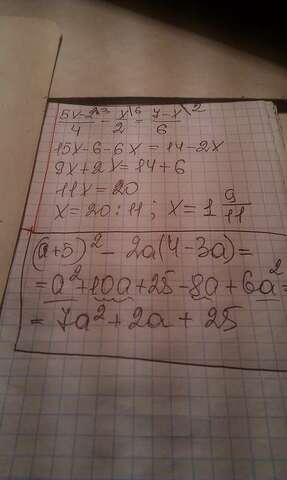 (5x-2)/4 \3 - x/2 \6 = (7-x)/6 \2
15x-6-6x=14-2x
9x+2x=14+6
11x=20
x=20:11; x=1 9/11
(a+5)²-2a(4-3a)=
=a²+10a+25-8a+6a²=
=7a²+2a+25